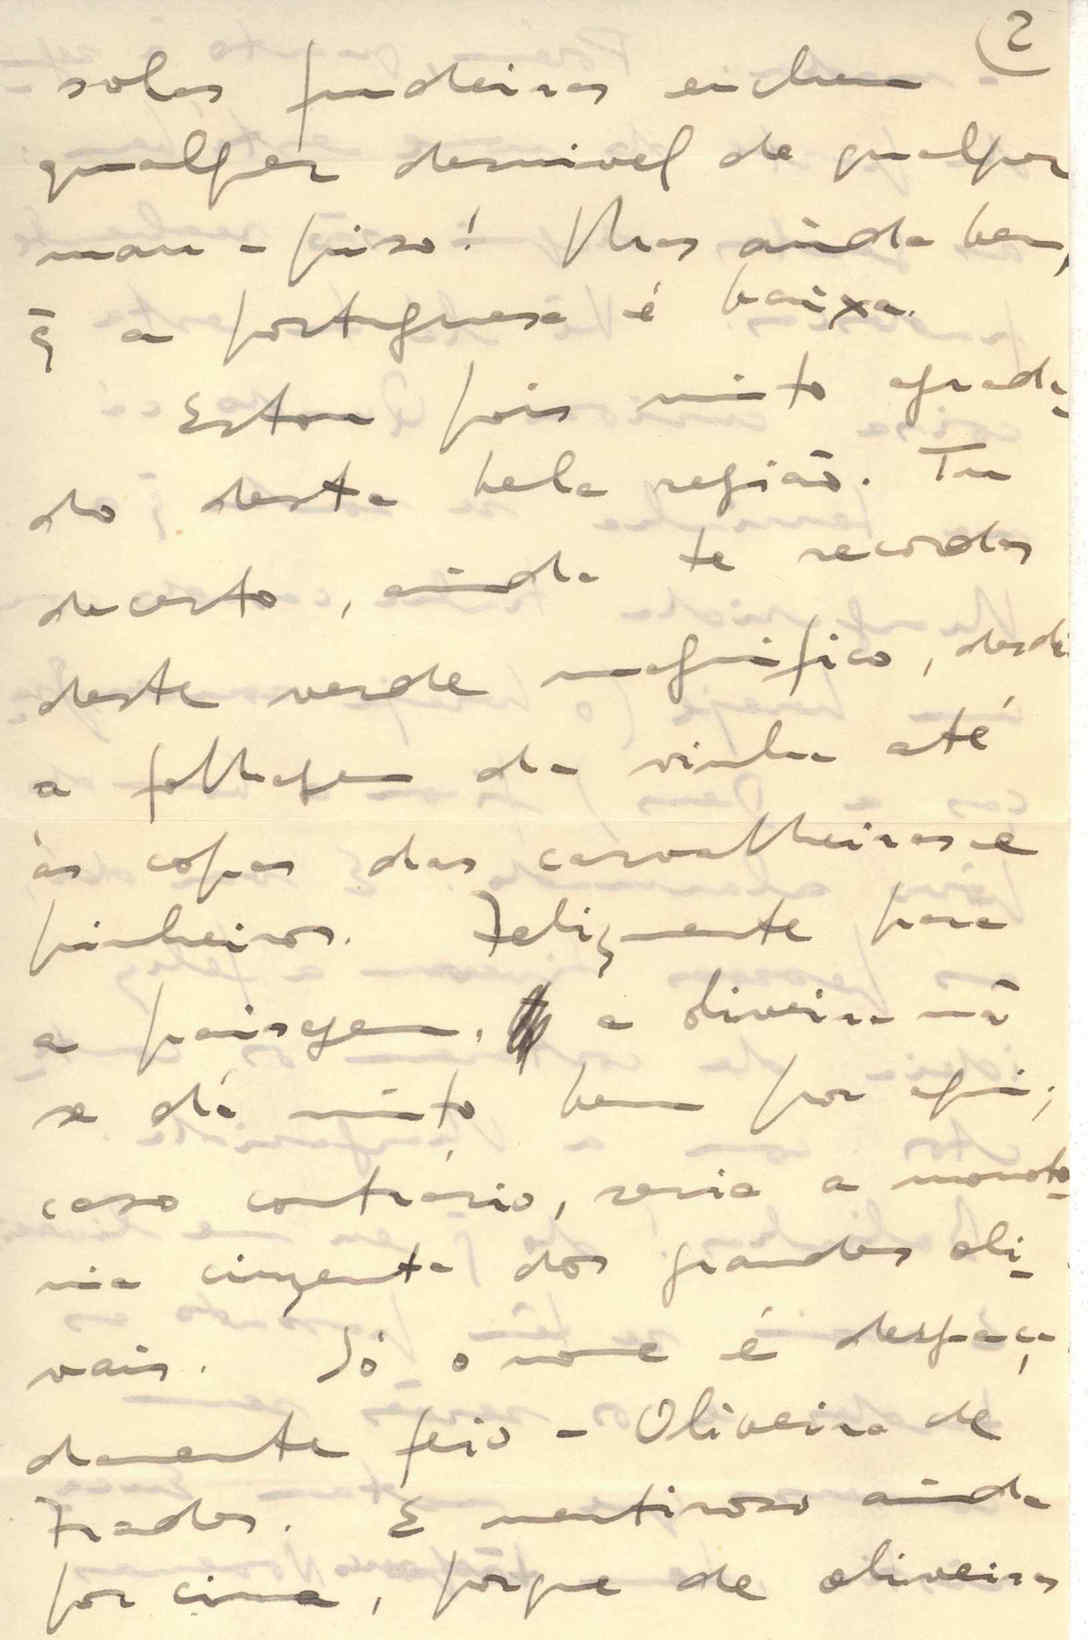 2
solas fundeiras enchem
qualquer desnivel de qualquer
mau-piso! Mas ainda bem,
q̃ a portuguesa é baixa.
Estou pois muito agrada-
do desta bela região. Tu
decerto, ainda te recordas
deste verde magnifico, desde
a folhagem da vinha até
ás copas das carvalheiras e
pinheiros. Felizmente para
a paisagem, a oliveira nã
se dá muito bem por aqui;
caso contrário, seria a monoto-
nia cinzenta dos grandes oli-
vais. Só o nome é despaça
damente feio - Oliveira de
Frades. E mentiroso ainda
por cima, porque de oliveiras